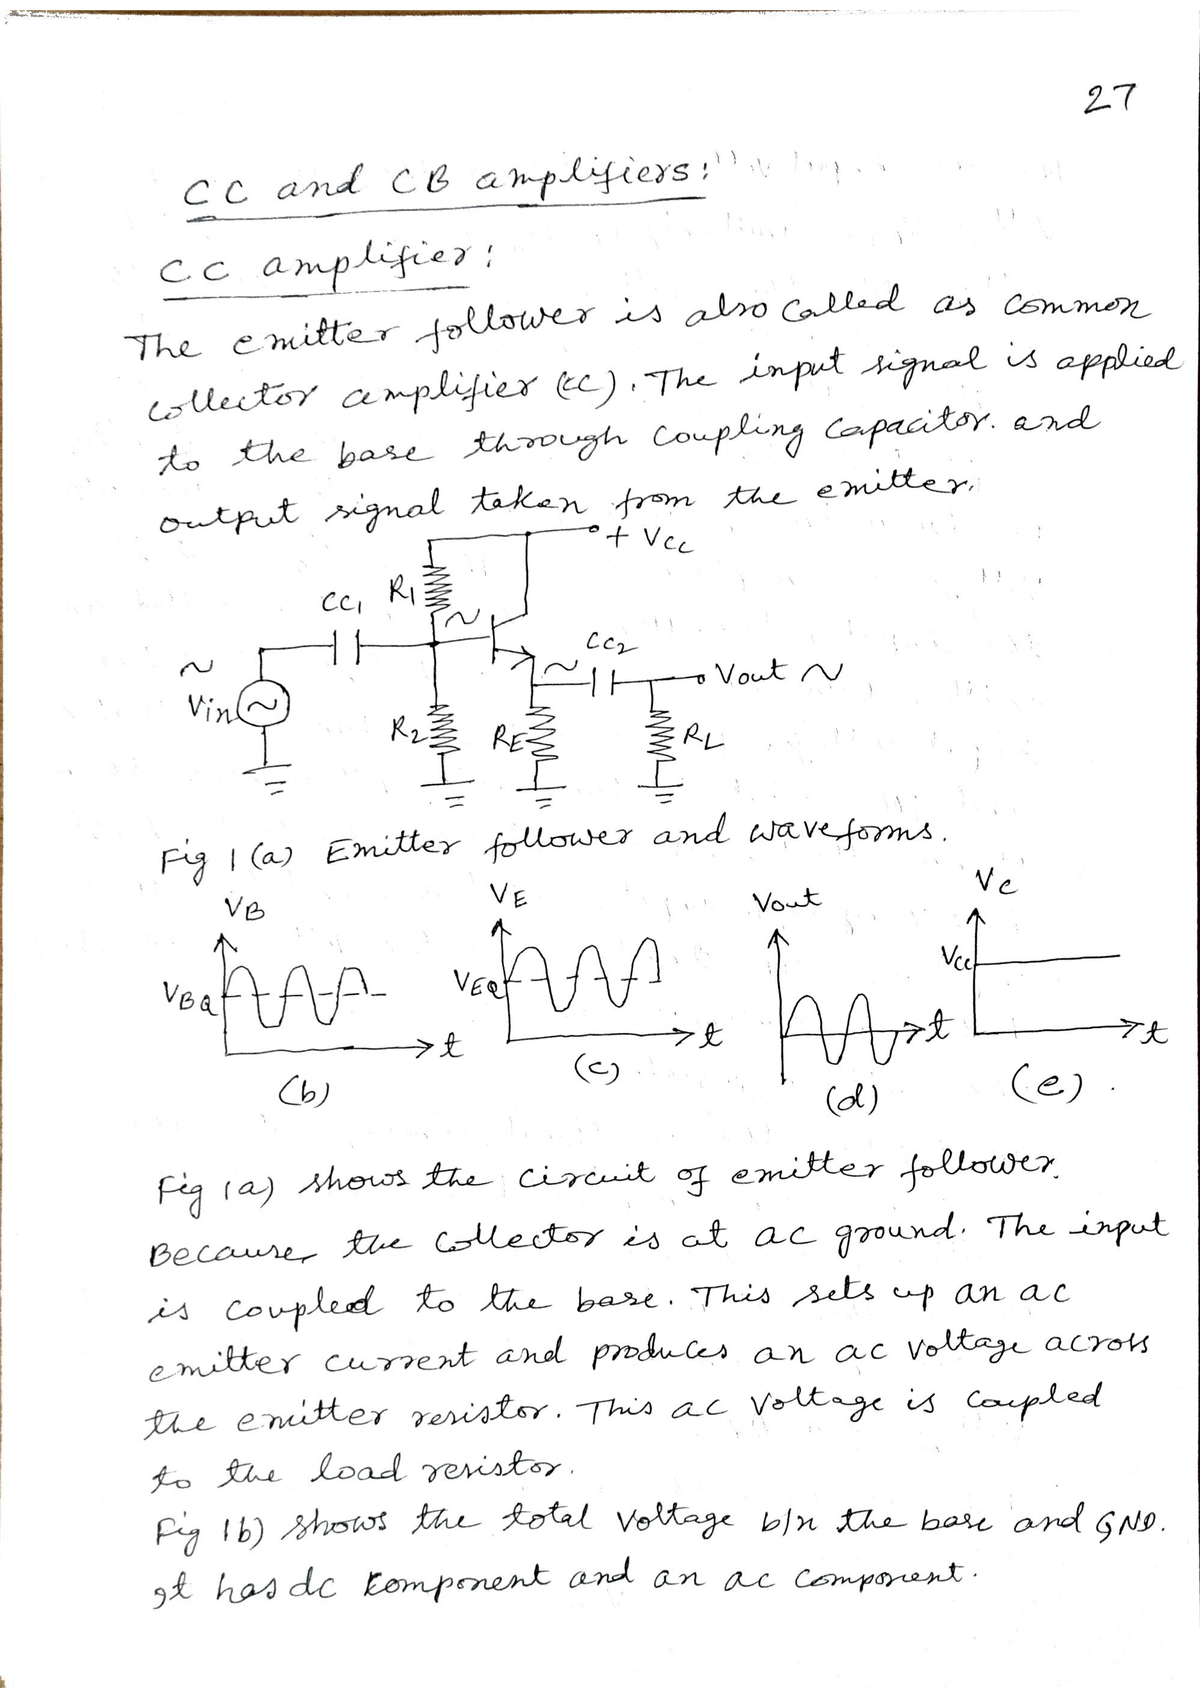 27
CC and CB amplifiers:
CC amplifier:
The emitter follower is also called as common
collector amplifier (CC). The input signal is applied
to the base through coupling capacitor. and
output signal taken from the emitter.
+ VCC
CC1
R1
CC2
Vin
Vout
R2
RE
RL
Fig 1 (a) Emitter follower and waveforms.
VB
VE
Vout
Vc
VBQ
VEQ
Vcc
t
t
t
t
(b)
(c)
(d)
(e).
Fig 1a) shows the circuit of emitter follower.
Because, the collector is at ac ground. The input
is coupled to the base. This sets up an ac
emitter current and produces an ac voltage across
the emitter resistor. This ac voltage is coupled
to the load resistor.
Fig 1b) shows the total voltage b/n the base and GND.
It has dc component and an ac component.